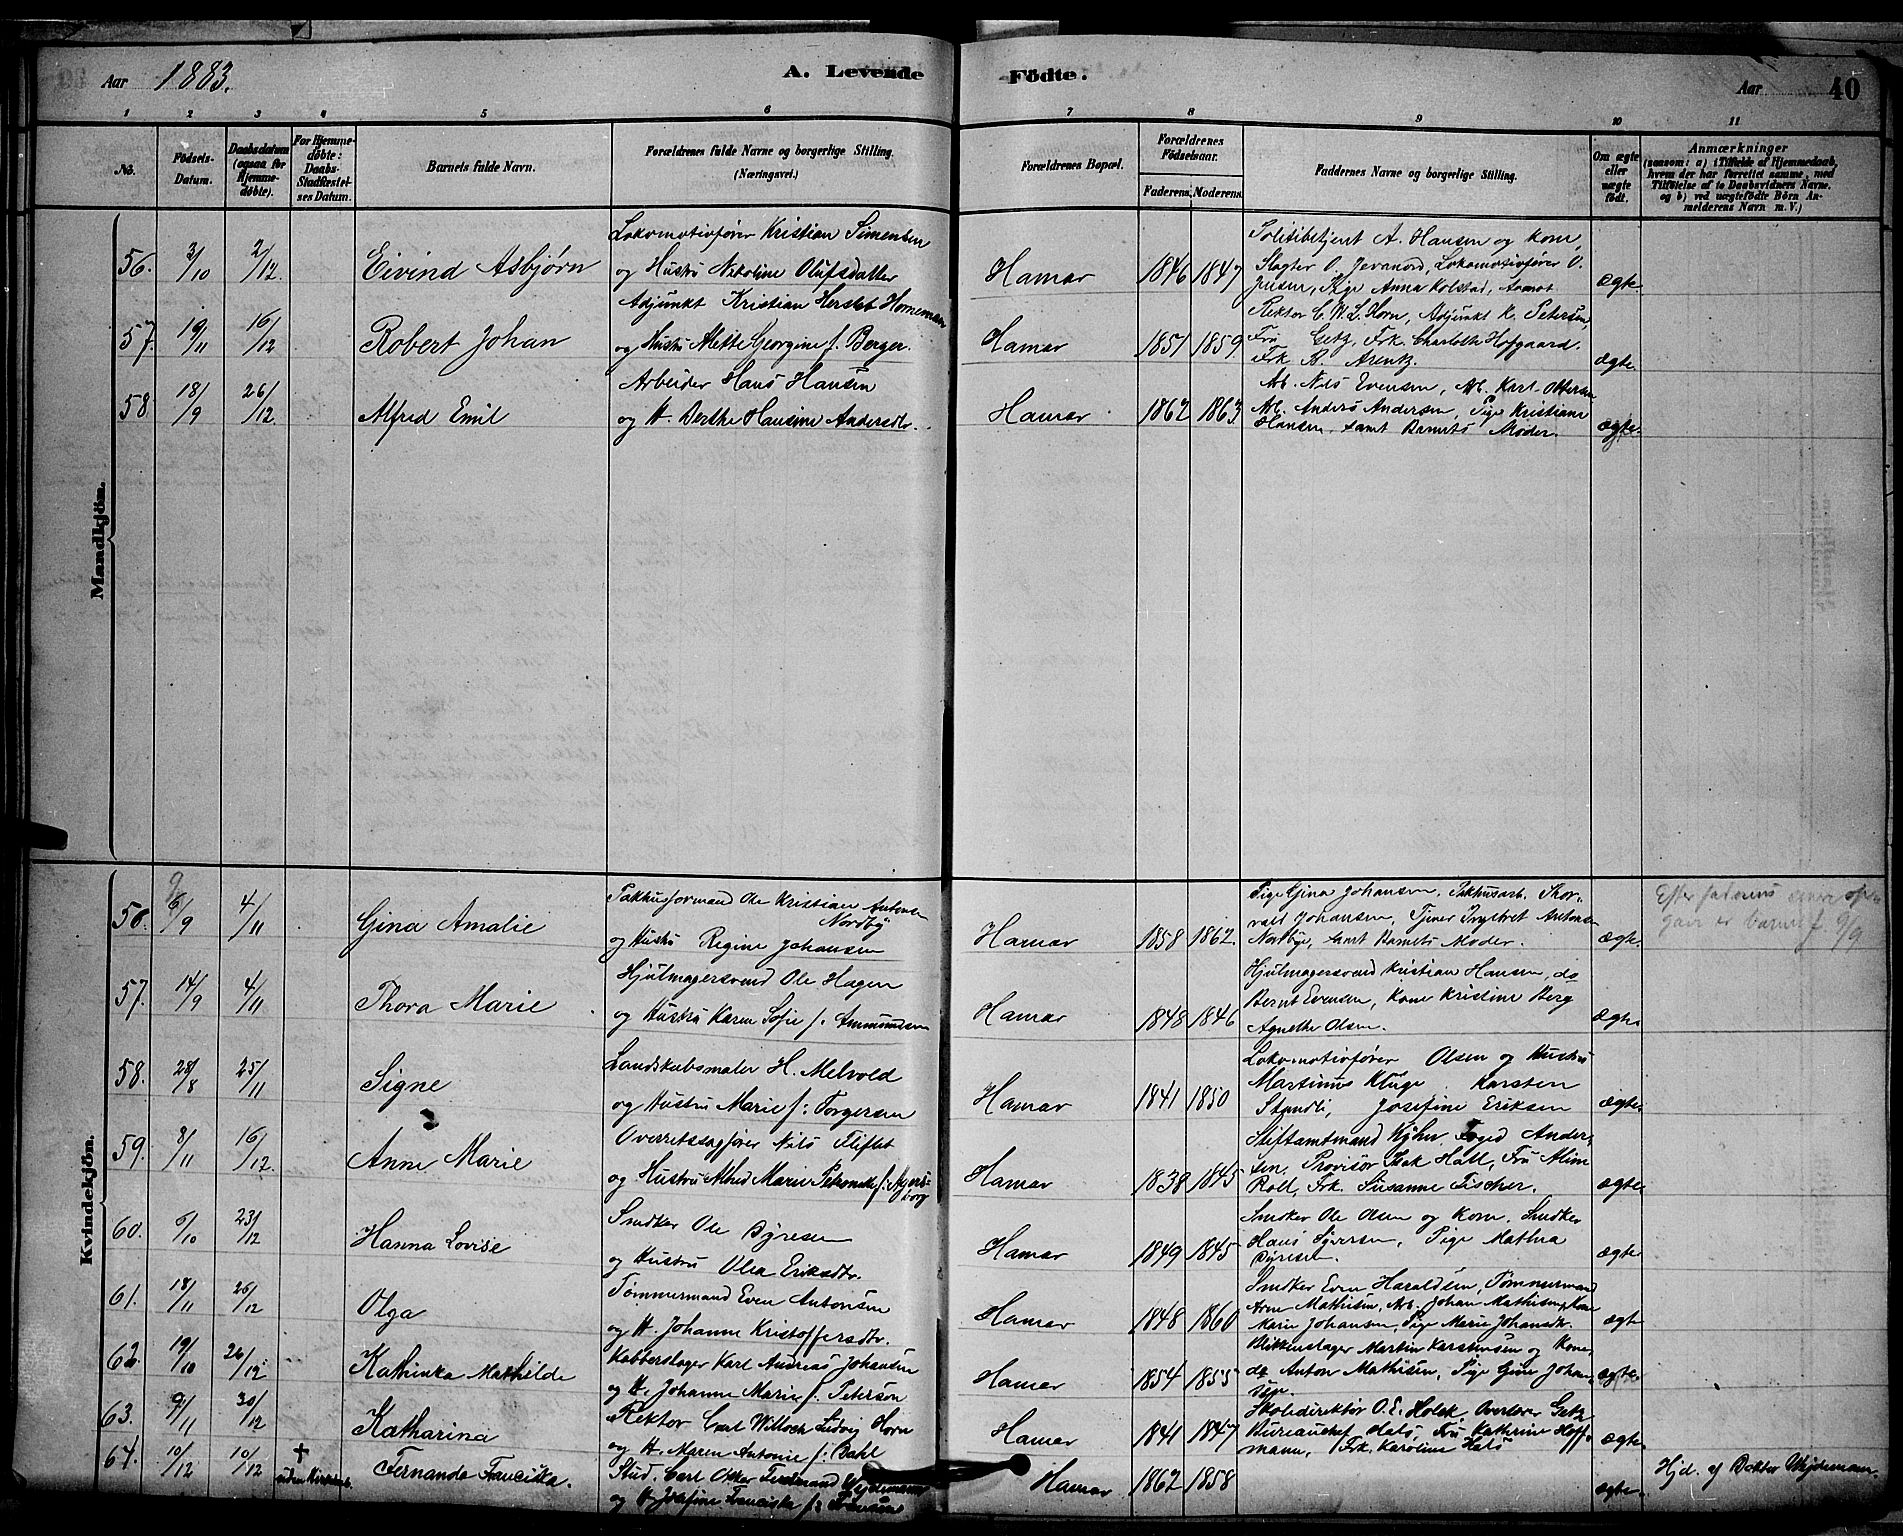 Aar 1883. A. Levende Födte. Aar 40
1 2 3 4 5 6 7 8 9 10 11
No. Födsels-Datum. Daabsdatum (ogsaa for Hjemme-döbte). For Hjemme-döbte: Daabs-Stadfæstel-ses Datum. Barnets fulde Navn. Forældrenes fulde Navne og borgerlige Stilling. (Næringsvei.) Forældrenes Bopæl. Forældrenes Födselsaar. Faderens. Moderens. Faddernes Navne og borgerlige Stilling. Om ægte eller uægte födt. Anmærkninger
(saasom: a) i Tilfælde af Hjemmedaab, hvem der har forrettet samme, med Tilföielse af to Daabsvidners Navne, og b) ved uægtefödte Börn Anmelderens Navn m. V.)
Mandkjön.
Lokomotivfører Kristian Simensen
Politibetjent A. Hansen og Kone,
56. 3/10 2/12. Eivind Asbjørn og Hustru Nikoline Olufsdatter Hamar 1846 1847 Slagter O. Jevanord, Lokomotivfører O.
Pige Anna Kolstad, ægte.
Adjunkt Kristian Herslet Hornemann
Rektor C. W. L. Horn, Adjunkt K. Petersen,
57. 19/11 16/12 Robert Johan og Hustru Mette Georgine f. Berger. Hamar 1851 1859 Fru Getz, Frk. Charlotte Hofgaard.
Frk. B. Arentz. ægte.
Arbeider Hans Hansen
Arb. Nils Evensen, Arb. Karl Ottersen
58 18/9 26/12. Alfred Emil og H. Berthe Hansine Andersdtr. Hamar 1862 1863 Arb. Anders Andersen, Pige Kristiane
Hansen, samt Barnets Moder. ægte.
Kvindekjön.
Pakhusformand Ole Kristian Antonsen
Nordby
Pige Gina Johansen. Pakhusarb. Thor-
Efter faderens
56. 6/9 4/11 Gina Amalie og Hustru Regine Johansen Hamar 1858 1862. vald Johansen, Tjener Antonsen
Nordbye, samt Barnets Moder. ægte. er barnet f. 9/9
Hjulmagersvend Ole Hagen
Hjulmagersvend Kristian Hansen, do
57. 14/9 4/11 Thora Marie og Hustru Karen Sofie f. Ammundsen Hamar 1848 1846 Bernt Evensen, Kone Kristine Berg
Agnethe Olsen. ægte.
Landskabsmaler H. Melvold
Lokomotivfører Olsen og Hustru
58. 28/8 25/11 Signe og Hustru Marie f: Torgersen Hamar 1841 1850 Martinus Kluge. Karsten
Josefine Eriksen ægte.
Overretssagfører Nils Fliflet
Stiftamtmand Kyhn, Foged Ander-
59. 8/11 16/12. Anne Marie og Hustru Marie Petronelle f: Hamar 1838 1845 sen, Provisor Isak Hall, Fru
Roll, Frk. Susanne Fischer. ægte.
Snedker Ole Syvesen
Snedker Ole Olsen og Kone. Snedker
60. 6/10 23/12 Hanna Lovise og Hustru Olea Eriksdtr. Hamar 1849 1845 Hans Syversen, Pige Mathea
ægte.
Tømmermand Even Antonsen
Snedker Even Haraldsen, Tømmermand
61. 18/11 26/12 Olga og H. Johanne Kristoffersdtr. Hamar 1848 1860 Arne Mathisen, Arb. Johan Mathisen, Kone
Marie Johansen, Pige Marie Johansdtr. ægte
Kobberslager Karl Andreas Johansen
Blikkenslager Martin Karstensen og Kone,
62. 19/10 26/12. Kathinka Mathilde og H. Johanne Marie f. Peterson Hamar 1854 1855 do Anton Mathisen, Pige Gine Johan-
sen. ægte
Rektor Carl Willoch Ludvig Horn
Skoledirektør O. E. Holck, Overlærer Getz
63. 9/11 30/12 Katharina og H. Maren Antonie f: Dahl Hamar 1841 1847 Bureauchef Hals, Fru Kathrine Hoff-
mann, Frk. Karoline Hals ægte.
64. 10/12 10/12 + uden Fernanda Franciska. Stud. Carl Oskar Ferdinand Wejdemann
og H. Josefine Franciska f: Hamar 1862 1858 ægte. Hjd. af Doktor Wejdemann.